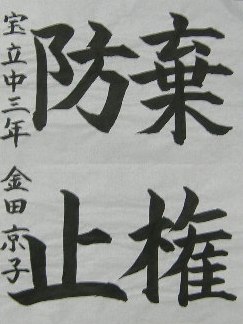 棄権
防止
宝立中三年 金田京子